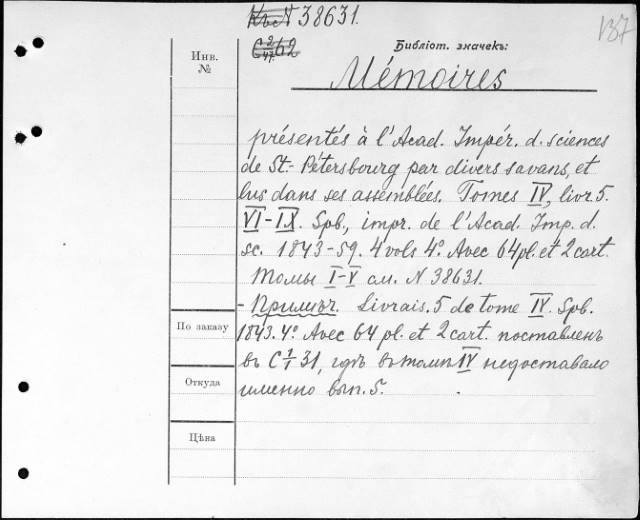 Къ N 38631.
137
С 3/47. 62
Библіот. значекъ:
Инв.
№
Mémoires
présentés à l'Acad. Impér. d. sciences
de St.- Pétersbourg par divers savans, et
lus dans ses assemblées. Tomes IV, livr 5.
VI-IX. Spb., impr. de l'Acad. Imp. d.
sc. 1843-59. 4 vols 4°. Avec 64 pl. et 2 cart.
Томы I-V см. N 38631.
- Примѣч. Livrais. 5 de tome IV. Spb.
1843. 4° Avec 64 pl. et 2 cart. поставленъ
въ С 1/1 31, гдѣ въ томѣ IV недоставало
именно вып. 5.
По заказу
Откуда
Цѣна